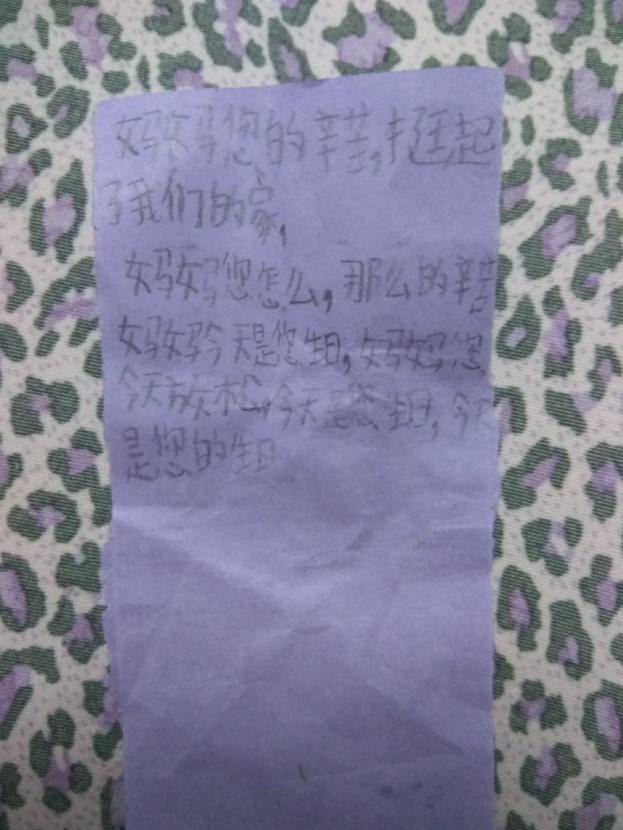 妈妈您的辛苦,挺起
了我们的家,
妈妈您怎么,那么的辛苦
妈妈今天是您生日,妈妈您
今天放松,今天是您生日,今天
是您的生日